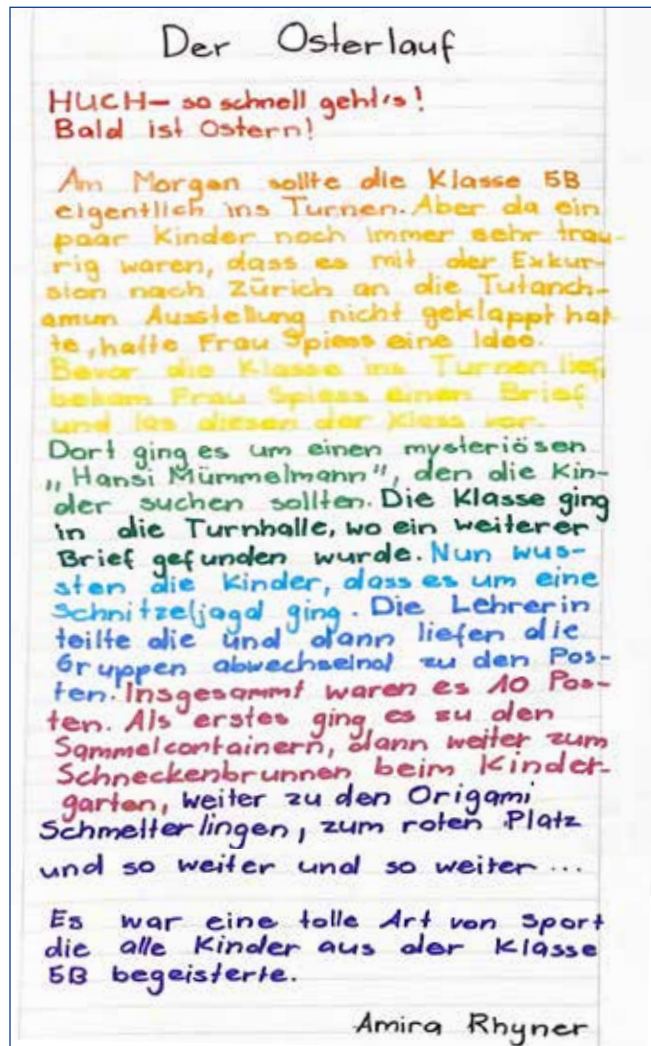 Der Osterlauf
HUCH – so schnell geht's!
Bald ist Ostern!
Am Morgen sollte die Klasse 5B
eigentlich ins Turnen. Aber da ein
paar Kinder noch immer sehr trau-
rig waren, dass es mit der Exkur-
sion nach Zürich an die Tutanch-
amun Ausstellung nicht geklappt hat-
te, hatte Frau Spiess eine Idee.
Bevor die Klasse ins Turnen lief,
bekam Frau Spiess einen Brief
und las diesen der Klass vor.
Dort ging es um einen mysteriösen
„Hansi Mümmelmann", den die Kin-
der suchen sollten. Die Klasse ging
in die Turnhalle, wo ein weiterer
Brief gefunden wurde. Nun wus-
sten die Kinder, dass es um eine
Schnitzeljagd ging. Die Lehrerin
teilte die und dann liefen die
Gruppen abwechselnd zu den Pos-
ten. Insgesammt waren es 10 Pos-
ten. Als erstes ging es zu den
Sammelcontainern, dann weiter zum
Schneckenbrunnen beim Kinder-
garten, weiter zu den Origami
Schmetterlingen, zum roten Platz
und so weiter und so weiter ...
Es war eine tolle Art von Sport
die alle Kinder aus der Klasse
5B begeisterte.
Amira Rhyner